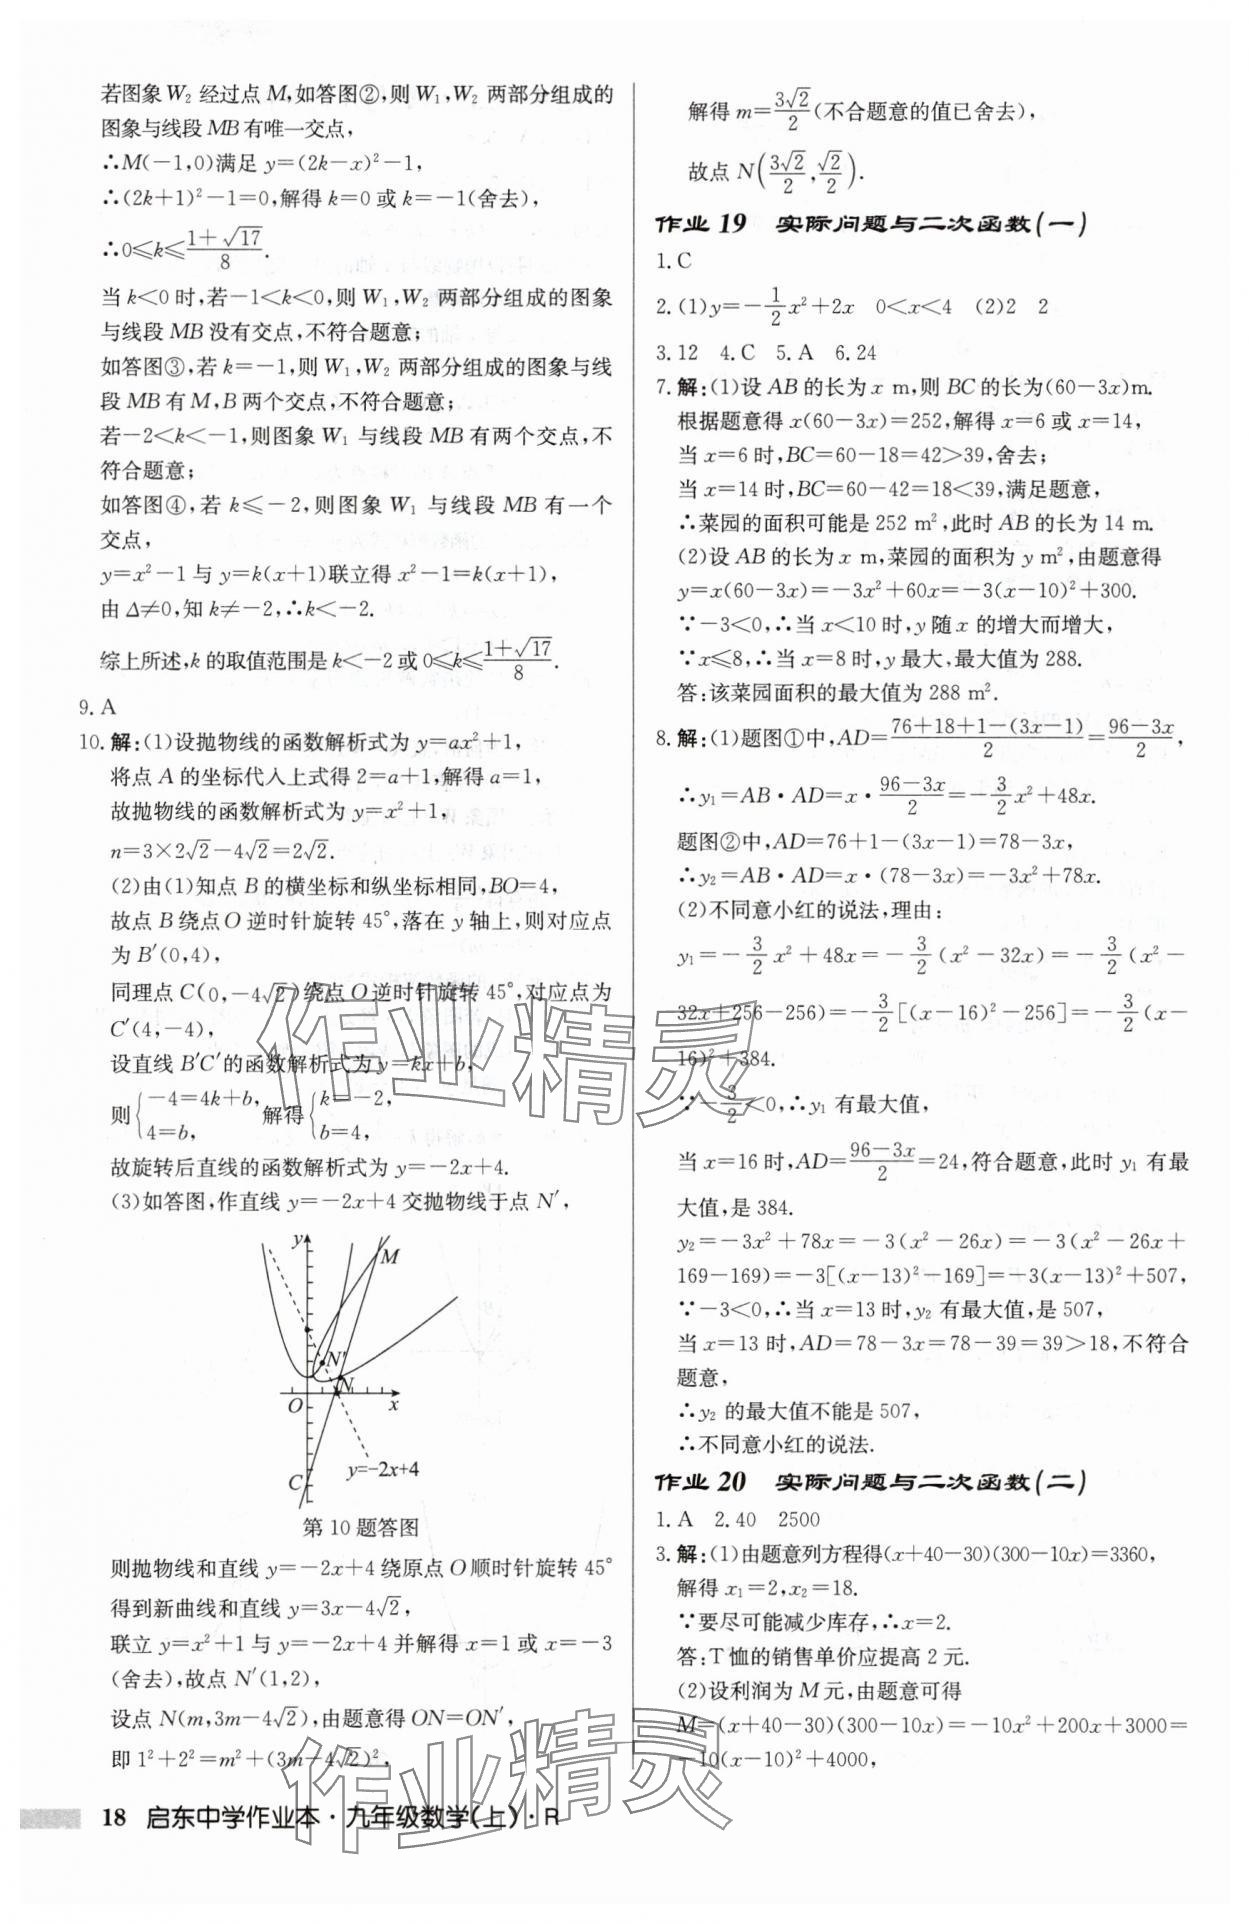 若图象 W₂ 经过点 M,如答图②,则 W₁,W₂ 两部分组成的
图象与线段 MB 有唯一交点,
∴M(-1,0)满足 y=(2k-x)²-1,
∴(2k+1)²-1=0,解得 k=0 或 k=-1(舍去),
∴0≤k≤(1+√17)/8.
当 k<0 时,若-1<k<0,则 W₁,W₂ 两部分组成的图象
与线段 MB 没有交点,不符合题意;
如答图③,若 k=-1,则 W₁,W₂ 两部分组成的图象与线
段 MB 有 M,B 两个交点,不符合题意;
若-2<k<-1,则图象 W₁ 与线段 MB 有两个交点,不
符合题意;
如答图④,若 k≤-2,则图象 W₁ 与线段 MB 有一个
交点,
y=x²-1 与 y=k(x+1)联立得 x²-1=k(x+1),
由 Δ≠0,知 k≠-2,∴k<-2.
综上所述,k 的取值范围是 k<-2 或 0≤k≤(1+√17)/8.
9. A
10. 解:(1)设抛物线的函数解析式为 y=ax²+1,
将点 A 的坐标代入上式得 2=a+1,解得 a=1,
故抛物线的函数解析式为 y=x²+1,
n=3×2√2-4√2=2√2.
(2)由(1)知点 B 的横坐标和纵坐标相同,BO=4,
故点 B 绕点 O 逆时针旋转 45°,落在 y 轴上,则对应点
为 B′(0,4),
同理点 C(0,-4√2)绕点 O 逆时针旋转 45°,对应点为
C′(4,-4),
设直线 B′C′的函数解析式为 y=kx+b,
则{-4=4k+b, 4=b, 解得{k=-2, b=4,
故旋转后直线的函数解析式为 y=-2x+4.
(3)如答图,作直线 y=-2x+4 交抛物线于点 N′,
y
M
N′
N
O
x
C
y=-2x+4
第 10 题答图
则抛物线和直线 y=-2x+4 绕原点 O 顺时针旋转 45°
得到新曲线和直线 y=3x-4√2,
联立 y=x²+1 与 y=-2x+4 并解得 x=1 或 x=-3
(舍去),故点 N′(1,2),
设点 N(m,3m-4√2),由题意得 ON=ON′,
即 1²+2²=m²+(3m-4√2)²,
解得 m=3√2/2(不合题意的值已舍去),
故点 N(3√2/2,√2/2).
作业 19 实际问题与二次函数(一)
1. C
2. (1)y=-1/2x²+2x 0<x<4 (2)2 2
3. 12 4. C 5. A 6. 24
7. 解:(1)设 AB 的长为 x m,则 BC 的长为(60-3x)m.
根据题意得 x(60-3x)=252,解得 x=6 或 x=14,
当 x=6 时,BC=60-18=42>39,舍去;
当 x=14 时,BC=60-42=18<39,满足题意,
∴菜园的面积可能是 252 m²,此时 AB 的长为 14 m.
(2)设 AB 的长为 x m,菜园的面积为 y m²,由题意得
y=x(60-3x)=-3x²+60x=-3(x-10)²+300.
∵-3<0,∴当 x<10 时,y 随 x 的增大而增大,
∵x≤8,∴当 x=8 时,y 最大,最大值为 288.
答:该菜园面积的最大值为 288 m².
8. 解:(1)题图①中,AD=(76+18+1-(3x-1))/2=(96-3x)/2,
∴y₁=AB·AD=x·(96-3x)/2=-3/2x²+48x.
题图②中,AD=76+1-(3x-1)=78-3x,
∴y₂=AB·AD=x·(78-3x)=-3x²+78x.
(2)不同意小红的说法,理由:
y₁=-3/2x²+48x=-3/2(x²-32x)=-3/2(x²-
32x+256-256)=-3/2[(x-16)²-256]=-3/2(x-
16)²+384.
∵-3/2<0,∴y₁ 有最大值,
当 x=16 时,AD=(96-3x)/2=24,符合题意,此时 y₁ 有最
大值,是 384.
y₂=-3x²+78x=-3(x²-26x)=-3(x²-26x+
169-169)=-3[(x-13)²-169]=-3(x-13)²+507,
∵-3<0,∴当 x=13 时,y₂ 有最大值,是 507,
当 x=13 时,AD=78-3x=78-39=39>18,不符合
题意,
∴y₂ 的最大值不能是 507,
∴不同意小红的说法.
作业 20 实际问题与二次函数(二)
1. A 2. 40 2500
3. 解:(1)由题意列方程得(x+40-30)(300-10x)=3360,
解得 x₁=2,x₂=18.
∵要尽可能减少库存,∴x=2.
答:T 恤的销售单价应提高 2 元.
(2)设利润为 M 元,由题意可得
M=(x+40-30)(300-10x)=-10x²+200x+3000=
-10(x-10)²+4000,
作业精灵
作业精灵
18 启东中学作业本·九年级数学(上)·R